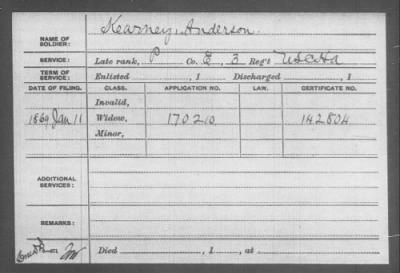 NAME OF SOLDIER: Kearney, Anderson
SERVICE: Late rank, P Co. E, 3 Reg't U S C H A
TERM OF SERVICE: Enlisted , 1 Discharged , 1
DATE OF FILING. CLASS. APPLICATION NO. LAW. CERTIFICATE NO.
Invalid,
1869 Jan 11 Widow, 170210 142804
Minor,
ADDITIONAL SERVICES:
REMARKS:
Died , 1 , at